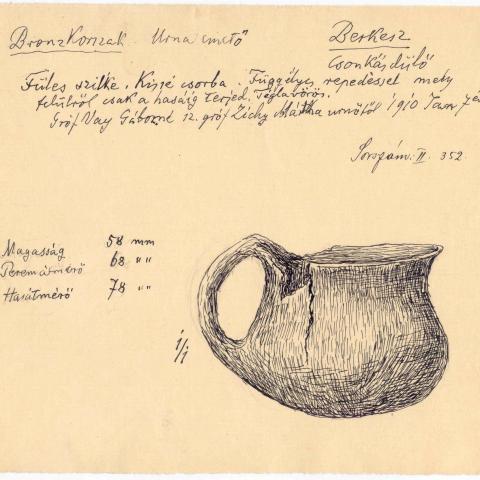 Bronzkorszak. Urna emető Berkesz
Csonkásdűlő
Füles szilke. Kissé csorba. Függélyes repedéssel mely
felülről csak a hasáig terjed. Téglavörös.
Gróf Vay Gáborné sz. gróf Zichy Mártha urnőtől 1910
Sorszám. II. 352.
Magasság 58 mm
Peremátmérő 68 " "
Hasátmérő 78 " "
1/1